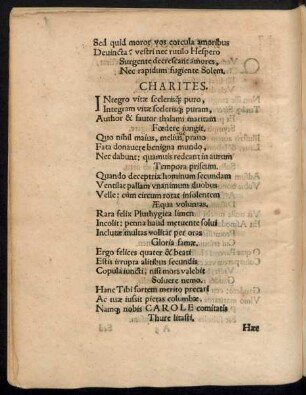 Sed quid moror vos corcula amoribus
Devincta? vestri nec rutilo Hespero
Surgente decrescant amores,
Nec rapidum fugiente Solem.
CHARITES.
INtegro vitæ scelerisq; puro,
Integram vitæ scelerisq; puram,
Author & fautor thalami maritam
Fœdere jungit.
Quo nihil maius, meliusve prano
Fata donavere benigna mundo,
Nec dabunt; quamvis redeant in aurum
Tempora priscum.
Quando deceptrix hominum secundam
Ventilat pallam unanimum duobus
Velle: cum circum rotat insolentem
Æqua voluntas.
Rara felix Pluthygiea limen
Incolit: penna haud metuente solvi
Inclutæ multus volitat per oras
Gloria famæ.
Ergo felices quater & beati
Estis irrupta aliebus secundis
Copula juncti; nisi mors valebit
Solvere nemo.
Hanc Tibi sortem merito precari
Ac tuæ jusit pietas columbæ,
Namq; nobis CAROLE comitatis
Thure litasti.
Hæc